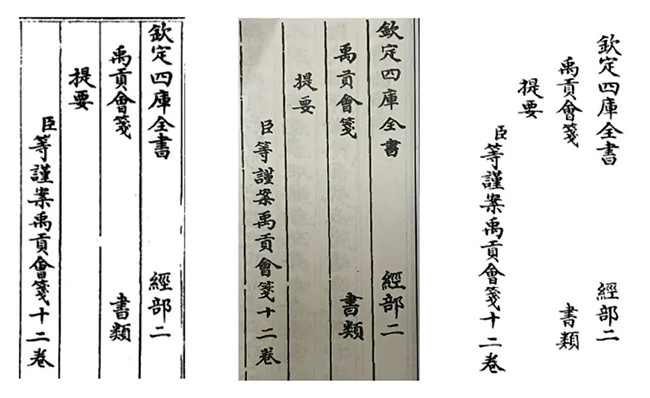 欽定四庫全書 經部二
禹貢會箋 書類
提要
臣等謹案禹貢會箋十二卷
欽定四庫全書 經部二
禹貢會箋 書類
提要
臣等謹案禹貢會箋十二卷
欽定四庫全書 經部二
禹貢會箋 書類
提要
臣等謹案禹貢會箋十二卷